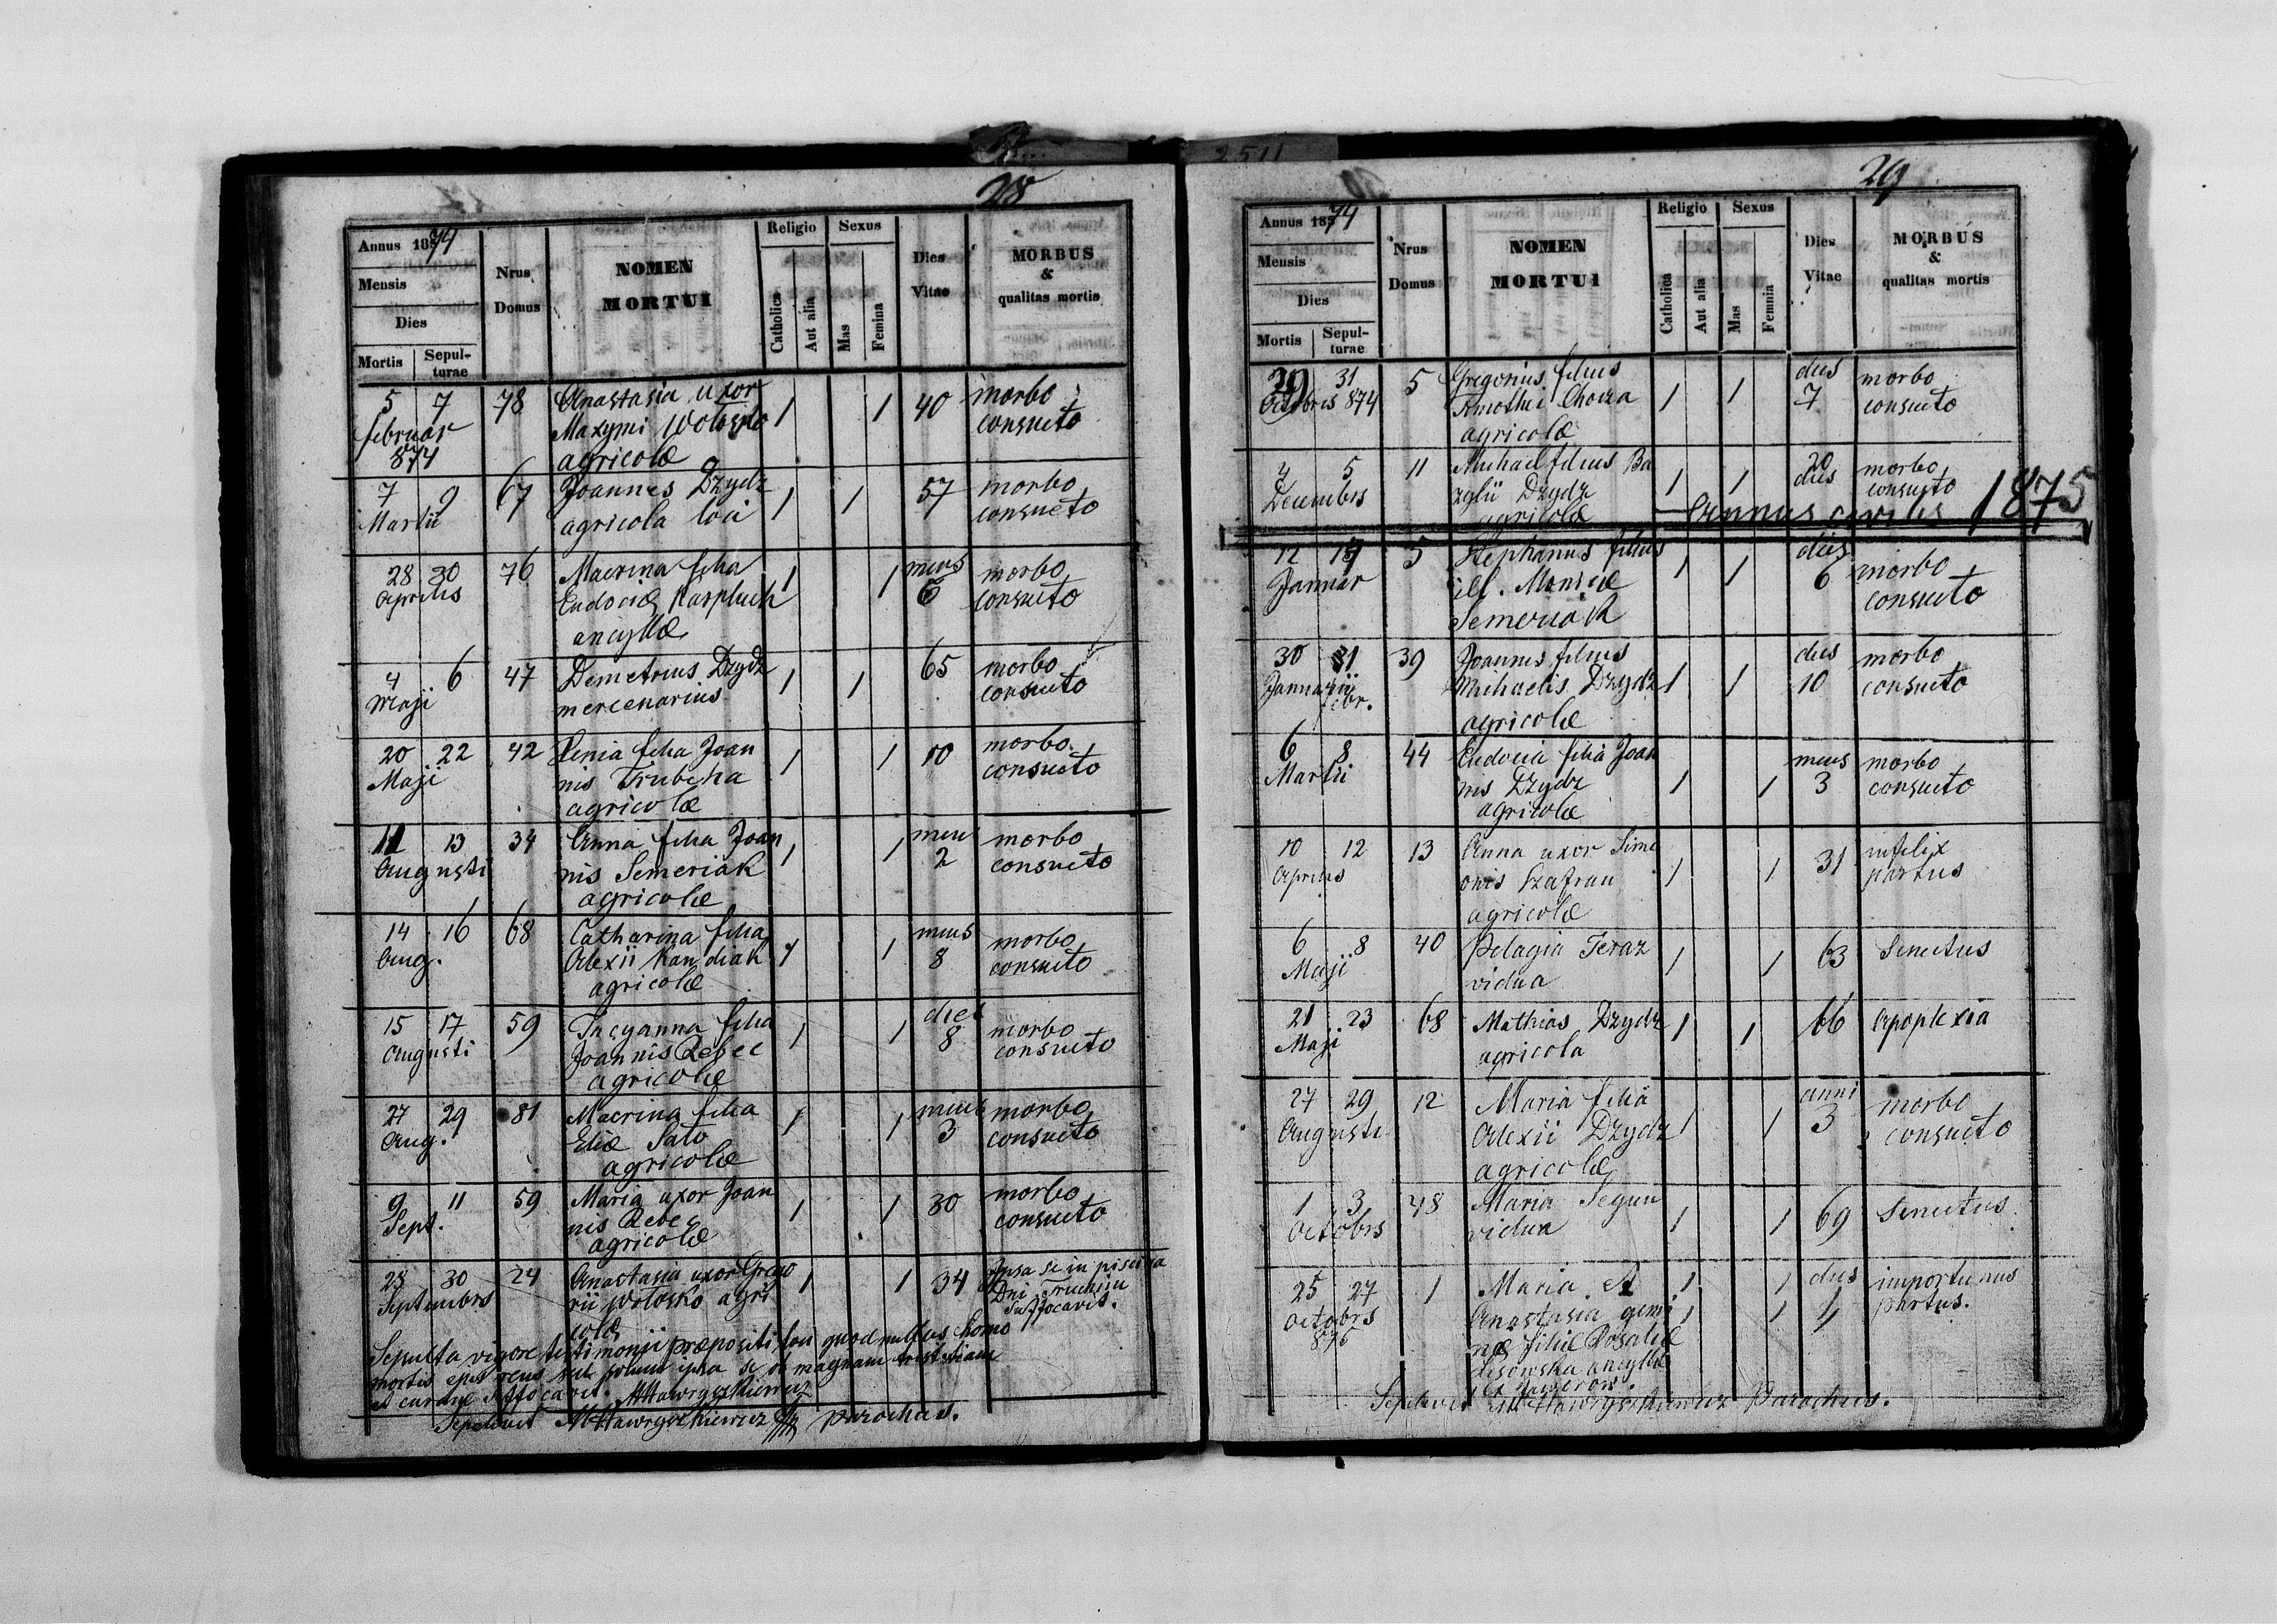 28
Annus 1874
Mensis
Dies
Mortis Sepulturae
Nrus Domus
NOMEN MORTUI
Religio
Catholica Aut alia
Sexus
Mas Femina
Dies Vitae
MORBUS & qualitas mortis
5 7 78 Anastasia uxor 1 1 40 morbo
februar Maxymi Wolosko consueto
874 agricolæ
7 9 67 Joannes Dzydz 1 1 57 morbo
Martii agricola loci consueto
28 30 76 Macrina filia 1 1 mens 6 morbo
Aprilis Eudociæ Karpluk consueto
ancyllæ
4 6 47 Demetrius Dzydz 1 1 65 morbo
Maji mercenarius consueto
20 22 42 Xenia filia Joan 1 1 10 morbo
Maji nis Trubcha consueto
agricolæ
11 13 34 Anna filia Joan 1 1 mens 2 morbo
Augusti nis Semeriak consueto
agricolæ
14 16 68 Catharina filia 1 1 mens 8 morbo
Aug. Alexii Kandiak consueto
agricolæ
15 17 59 Tacyanna filia 1 1 dies 8 morbo
Augusti Joannis Rebec consueto
agricolæ
27 29 81 Macrina filia 1 1 mens 3 morbo
Aug. Eliæ Sato consueto
agricolæ
9 11 59 Maria uxor Joan 1 1 30 morbo
Sept. nis Rebec consueto
agricolæ
28 30 24 Anastasia uxor Grego 1 1 34 Ipsa se in piscina
Septembrs rii Wolosko agri Dni
colæ suffocavit.
Sepulta vigore testimonii præpositi loci quod nullus homo
mortis ejus reus sed solum ipsa se ob magnam tristitiam
et curam suffocavit. MHawryszkiewicz
Sepelivit MHawryszkiewicz parochus.
2511
29
Annus 1874
Mensis
Dies
Mortis Sepulturae
Nrus Domus
NOMEN MORTUI
Religio
Catholica Aut alia
Sexus
Mas Femnia
Dies Vitae
MORBUS & qualitas mortis
29 31 5 Gregorius filius 1 1 dies 7 morbo
Octobris 874 Timothei consueto
agricolæ
4 5 11 Michael filius Ba 1 1 20 dies morbo
Decembrs zylii Dzydz consueto
agricolæ
Annus civilis 1875
12 5 Stephanus filius 1 1 dies 6 morbo
Januar ill. Monicæ consueto
Semeriak
30 31 39 Joannes filius 1 1 dies 10 morbo
Januarii Michaelis Dzydz consueto
febr. agricolæ
6 8 44 Eudocia filia Joan 1 1 mens 3 morbo
Martii nis Dzydz consueto
agricolæ
10 12 13 Anna uxor Sime 1 1 31 infelix
Aprilis onis Szafran partus
agricolæ
6 8 40 Pelagia Teraz 1 1 63 Senectus
Maji vidua
21 23 68 Mathias Dzydz 1 1 66 Apoplexia
Maji agricola
27 29 12 Maria filia 1 1 anni 3 morbo
Augusti Alexii Dzydz consueto
agricolæ
1 3 48 Maria Segun 1 1 69 Senectus
Octobrs vidua
25 27 1 Maria et 1 1 dies importunus
octobrs Anastasia gemi 1 1 1 partus.
876 næ filiæ Rosaliæ
Lisowska ancyllæ
ex Jaworow.
Sepelivit MHawryszkiewicz Parochus.